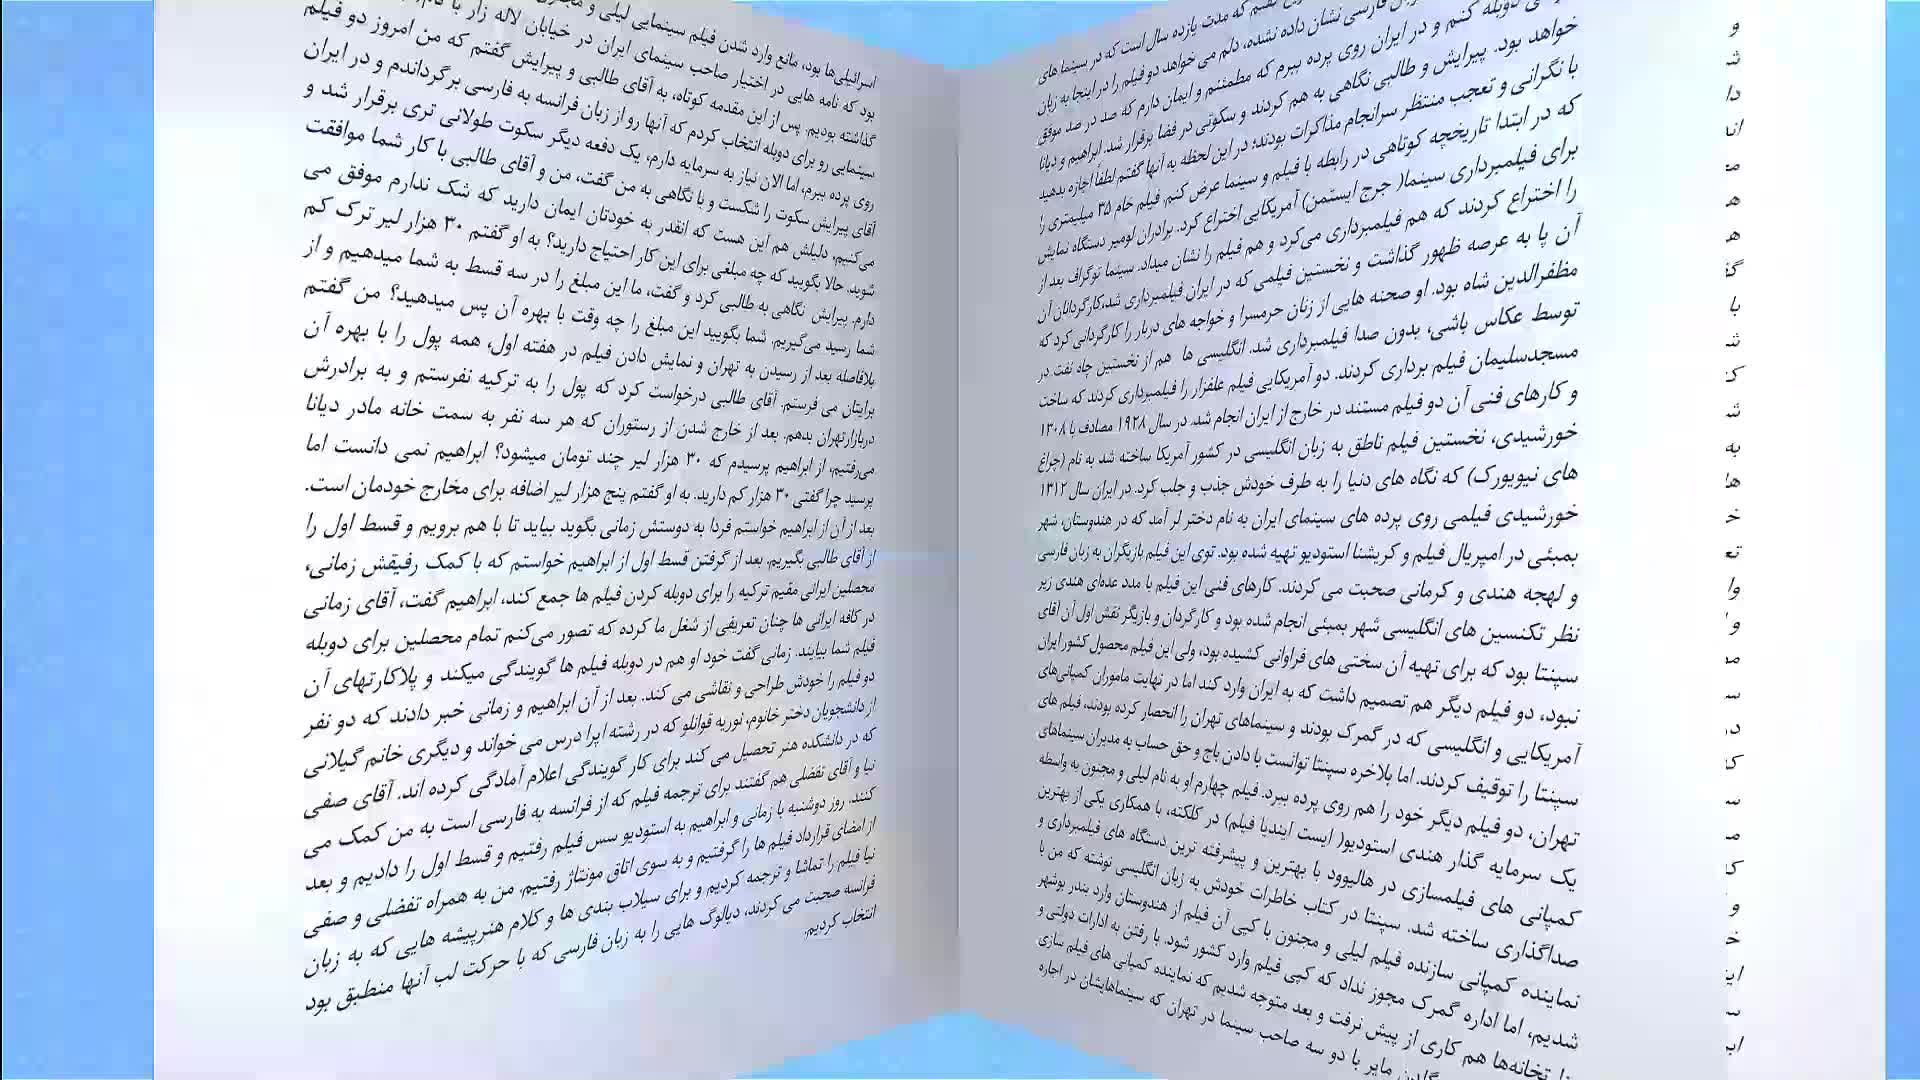 فارسی نشان داده نشده، دلم می خواهد دو فیلم را در اینجا به زبان
دوبله کنم و در ایران روی پرده ببرم که مطمئنم و ایمان دارم که صد در صد موفق
خواهد بود. پیرایش و طالبی نگاهی به هم کردند و سکوتی در فضا برقرار شد. ابراهیم و دیانا
با نگرانی و تعجب منتظر سرانجام مذاکرات بودند؛ در این لحظه به آنها گفتم لطفاً اجازه بدهید
که در ابتدا تاریخچه کوتاهی در رابطه با فیلم و سینما عرض کنم. فیلم خام ۳۵ میلیمتری را
برای فیلمبرداری سینما( جرج ایستمن) آمریکایی اختراع کرد. برادران لومیر دستگاه نمایش
را اختراع کردند که هم فیلمبرداری می‌کرد و هم فیلم را نشان میداد. سینما توگراف بعد از
آن پا به عرصه ظهور گذاشت و نخستین فیلمی که در ایران فیلمبرداری شد،کارگردانان آن
مظفرالدین شاه بود. او صحنه هایی از زنان حرمسرا و خواجه های دربار را کارگردانی کرد که
توسط عکاس باشی، بدون صدا فیلمبرداری شد. انگلیسی ها هم از نخستین چاه نفت در
مسجدسلیمان فیلم برداری کردند. دو آمریکایی فیلم علفزار را فیلمبرداری کردند که ساخت
و کارهای فنی آن دو فیلم مستند در خارج از ایران انجام شد. در سال ۱۹۲۸ مصادف با ۱۳۰۸
خورشیدی، نخستین فیلم ناطق به زبان انگلیسی در کشور آمریکا ساخته شد به نام (چراغ
های نیویورک) که نگاه های دنیا را به طرف خودش جذب و جلب کرد. در ایران سال ۱۳۱۲
خورشیدی فیلمی روی پرده های سینمای ایران به نام دختر لر آمد که در هندوستان، شهر
بمبئی در امپریال فیلم و کریشنا استودیو تهیه شده بود. توی این فیلم بازیگران به زبان فارسی
و لهجه هندی و کرمانی صحبت می کردند. کارهای فنی این فیلم با مدد عده‌ای هندی زیر
نظر تکنسین های انگلیسی شهر بمبئی انجام شده بود و کارگردان و بازیگر نقش اول آن آقای
سپنتا بود که برای تهیه آن سختی های فراوانی کشیده بود، ولی این فیلم محصول کشور ایران
نبود، دو فیلم دیگر هم تصمیم داشت که به ایران وارد کند اما در نهایت ماموران کمپانی‌های
آمریکایی و انگلیسی که در گمرک بودند و سینماهای تهران را انحصار کرده بودند، فیلم های
سپنتا را توقیف کردند. اما بلاخره سپنتا توانست با دادن باج و حق حساب به مدیران سینماهای
تهران، دو فیلم دیگر خود را هم روی پرده ببرد. فیلم چهارم او به نام لیلی و مجنون به واسطه
یک سرمایه گذار هندی استودیو( ایست ایندیا فیلم) در کلکته، با همکاری یکی از بهترین
کمپانی های فیلمسازی در هالیوود با بهترین و پیشرفته ترین دستگاه های فیلمبرداری و
صداگذاری ساخته شد. سپنتا در کتاب خاطرات خودش به زبان انگلیسی نوشته که من با
نماینده کمپانی سازنده فیلم لیلی و مجنون با کپی آن فیلم از هندوستان وارد بندر بوشهر
شدیم، اما اداره گمرک مجوز نداد که کپی فیلم وارد کشور شود. با رفتن به ادارات دولتی و
تخانه‌ها هم کاری از پیش نرفت و بعد متوجه شدیم که نماینده کمپانی های فیلم سازی
مایر با دو سه صاحب سینما در تهران که سینماهایشان در اجاره
اسرائیلی‌ها بود، مانع وارد شدن فیلم سینمایی لیلی و
بود که نامه هایی در اختیار صاحب سینمای ایران در خیابان لاله زار با
گذاشته بودیم. پس از این مقدمه کوتاه، به آقای طالبی و پیرایش گفتم که من امروز دو فیلم
سینمایی رو برای دوبله انتخاب کردم که آنها رو از زبان فرانسه به فارسی برگرداندم و در ایران
روی پرده ببرم، اما الان نیاز به سرمایه دارم، یک دفعه دیگر سکوت طولانی تری برقرار شد و
آقای پیرایش سکوت را شکست و با نگاهی به من گفت، من و آقای طالبی با کار شما موافقت
می‌کنیم، دلیلش هم این هست که انقدر به خودتان ایمان دارید که شک ندارم موفق می
شوید. حالا بگویید که چه مبلغی برای این کار احتیاج دارید؟ به او گفتم ۳۰ هزار لیر ترک کم
دارم. پیرایش نگاهی به طالبی کرد و گفت، ما این مبلغ را در سه قسط به شما میدهیم و از
شما رسید می‌گیریم. شما بگویید این مبلغ را چه وقت با بهره آن پس میدهید؟ من گفتم
بلافاصله بعد از رسیدن به تهران و نمایش دادن فیلم در هفته اول، همه پول را با بهره آن
برایتان می فرستم. آقای طالبی درخواست کرد که پول را به ترکیه نفرستم و به برادرش
دربازارتهران بدهم. بعد از خارج شدن از رستوران که هر سه نفر به سمت خانه مادر دیانا
می‌رفتیم، از ابراهیم پرسیدم که ۳۰ هزار لیر چند تومان میشود؟ ابراهیم نمی دانست اما
پرسید چرا گفتی ۳۰ هزار کم دارید. به او گفتم پنج هزار لیر اضافه برای مخارج خودمان است.
بعد از آن از ابراهیم خواستم فردا به دوستش زمانی بگوید بیاید تا با هم برویم و قسط اول را
از آقای طالبی بگیریم. بعد از گرفتن قسط اول از ابراهیم خواستم که با کمک رفیقش زمانی،
محصلین ایرانی مقیم ترکیه را برای دوبله کردن فیلم ها جمع کند، ابراهیم گفت، آقای زمانی
در کافه ایرانی ها چنان تعریفی از شغل ما کرده که تصور می‌کنم تمام محصلین برای دوبله
فیلم شما بیایند. زمانی گفت خود او هم در دوبله فیلم ها گویندگی میکند و پلاکارتهای آن
دو فیلم را خودش طراحی و نقاشی می کند. بعد از آن ابراهیم و زمانی خبر دادند که دو نفر
از دانشجویان دختر خانوم، نوریه قوانلو که در رشته اپرا درس می خواند و دیگری خانم گیلانی
که در دانشکده هنر تحصیل می کند برای کار گویندگی اعلام آمادگی کرده اند. آقای صفی
نیا و آقای تفضلی هم گفتند برای ترجمه فیلم که از فرانسه به فارسی است به من کمک می
کنند. روز دوشنبه با زمانی و ابراهیم به استودیو سس فیلم رفتیم و قسط اول را دادیم و بعد
از امضای قرارداد فیلم ها را گرفتیم و به سوی اتاق مونتاژ رفتیم. من به همراه تفضلی و صفی
نیا فیلم را تماشا و ترجمه کردیم و برای سیلاب بندی ها و کلام هنرپیشه هایی که به زبان
فرانسه صحبت می کردند، دیالوگ هایی را به زبان فارسی که با حرکت لب آنها منطبق بود
انتخاب کردیم.